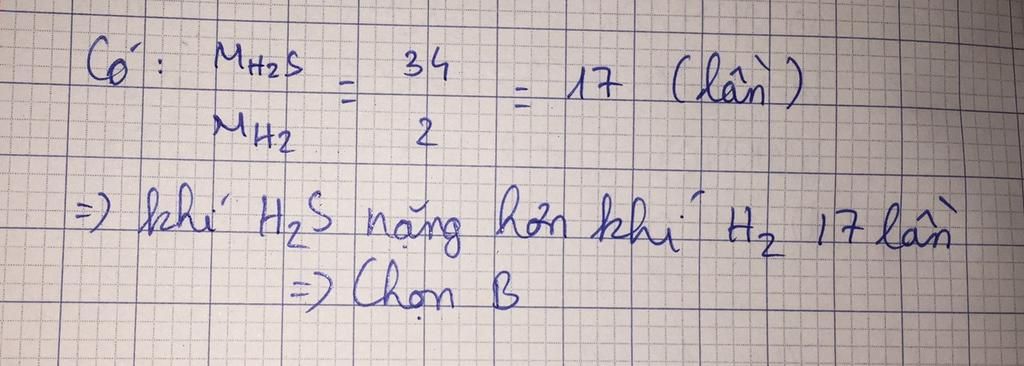 Có: M_H2S / M_H2 = 34 / 2 = 17 (lần)
=> khí H2S nặng hơn khí H2 17 lần
=> Chọn B